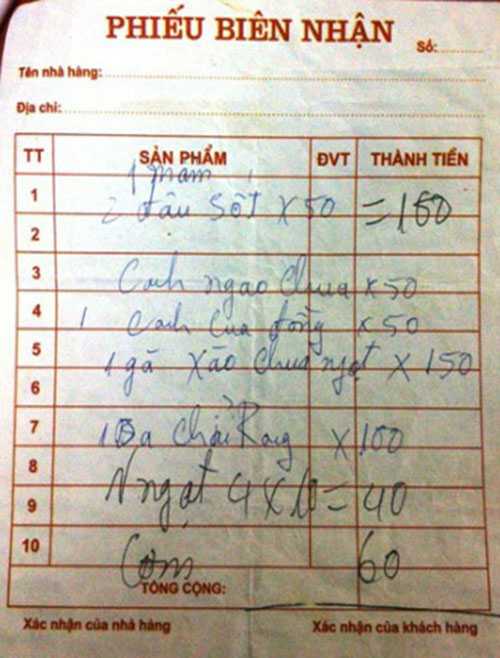 PHIẾU BIÊN NHẬN
Số:
Tên nhà hàng:
Địa chỉ:
TT SẢN PHẨM ĐVT THÀNH TIỀN
1 1 mắm
2 2 đậu sốt x 50 = 150
3 Canh ngao chua x 50
4 1 canh cua đồng x 50
5 1 gà xào chua ngọt x 150
6
7 1 Ba chỉ Rang x 100
8
9 N ngọt 4 x 10 = 40
10 Cơm 60
TỔNG CỘNG:
Xác nhận của nhà hàng Xác nhận của khách hàng